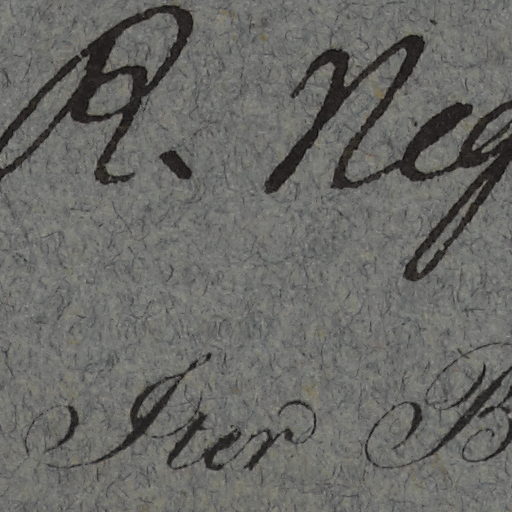 R. Neg
Iter B